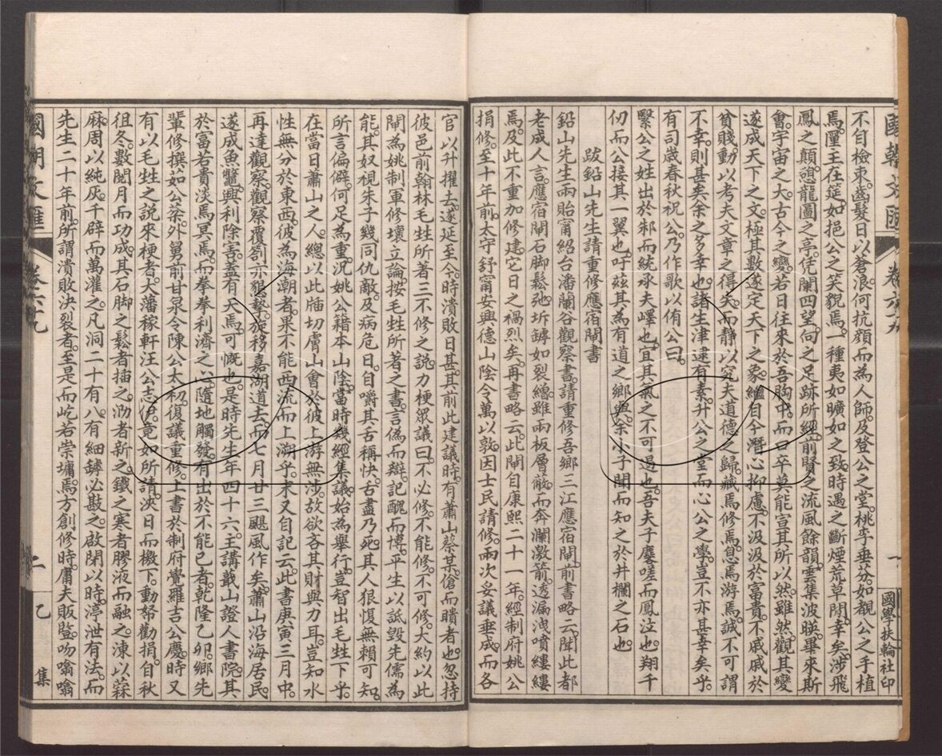 國朝文匯 卷六九 一 國學扶輪社印
不自檢束齒髮日以蒼浪何抗顏而為人師及登公之堂桃李垂芬如覩公之手植
焉厘王在筵如挹公之笑貌焉一種夷如曠如之致時遇之斷煙荒草閒幸矣涉飛
鳳之顛憩龍圖之亭凭闌四望向之足跡所經前賢之流風餘韻雲集波睽畢來斯
會宇宙之大古今之變若日往來於吾胸中而口卒莫能宣其所以然雖然觀其變
遂成天下之文極其數遂定天下之象繼自今潛心抑慮不汲汲於富貴不戚戚於
貧賤動以考夫文章之得失而靜以究夫道德之歸藏焉修焉息焉游焉誠不可謂
不幸則甚矣余之多幸也諸生津逮有素升公之堂而心公之學豈不亦甚幸矣乎
有司歲春秋祝公乃作歌以侑公曰
繄公之姓出於邾而統承夫嶧也宜其氣之不可遏也吾夫子麐嗟而鳳泣也翔千
仞而公接其一翼也吁玆其為有道之鄉與余小子聞而知之於井欄之石也
跋鉛山先生請重修應宿閘書
鉛山先生兩貽甯紹台潘蘭谷觀察書請重修吾鄉三江應宿閘前書略云聞此都
老成人言應宿閘石脚鬆弛坼罅如裂繒雖兩板層蔽而奔瀾激箭透漏洩噴縷縷
焉及此不重加修建它日之禍烈矣再書略云此閘自康熙二十一年經制府姚公
捐修至十年前太守舒甯安興德山陰令萬以敦因士民請修兩次妥議垂成而各
官以升擢去遂延至今時潰敗日甚其前此建議時有蕭山蔡某傖而瞶者也忽持
彼邑前翰林毛甡所著三不修之說力梗眾議曰不必修不能修不可修大約以此
閘為姚制軍修壞立論按毛甡所著之書言偽而辯記醜而博平生以詆毀先儒為
能其奴視朱子幾同仇敵及病危日自嚼其舌稱快舌盡乃死其人狠愎無賴可知
所言偏僻何足為重況姚公籍本山陰當時幾經集議始為舉行豈智出毛甡下乎
在當日蕭山之人總以此牐切膚山會於彼上游無涉故欲吝其財與力耳豈知水
性無分於東西彼為海潮者果不能西流而上溯乎末又自記云此書庚寅三月中
再達觀察觀察覆劄亦懇摯旋移嘉湖道去而七月廿三颶風作矣蕭山沿海居民
遂成魚鼈興利除害蓋有天焉可慨也是時先生年四十六主講戴山證人書院其
於富若貴淡焉冥焉而拳拳利濟之心隨地觸發有出於不能已者乾隆乙卯鄉先
輩修撰茹公棻外舅前甘泉令陳公太初復議重修上書於制府覺羅吉公慶時又
有以毛甡之說來梗者大藩稼軒汪公志伊竟如所請浹日而檄下動帑勸捐自秋
徂冬數閱月而功成其石脚之鬆者擂之泐者新之鐵之寒者膠液而融之湅以蔴
麻周以純灰千辟而萬灌之凡洞二十有八有細罅必㪣之啟閉以時渟泄有法而
先生二十年前所謂潰敗決裂者至是而屹若崇墉焉方創修時庸夫販豎吻噏噏
國朝文匯 卷六九 二 乙集